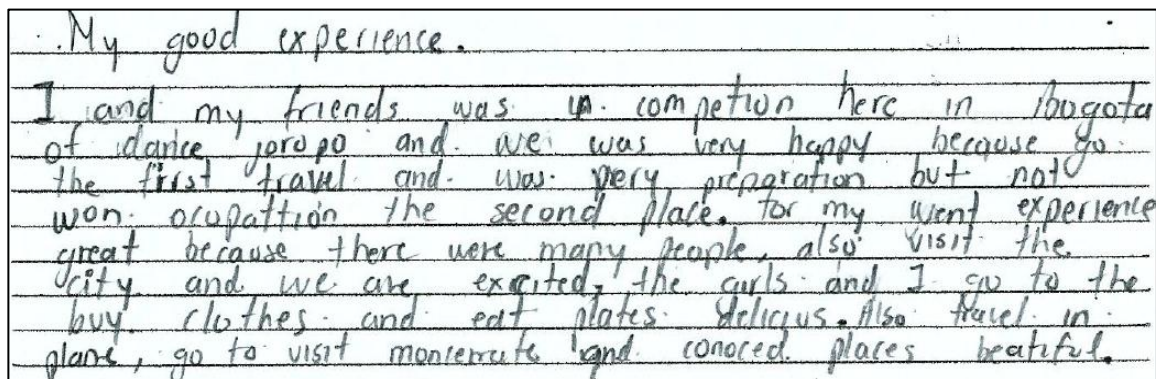 My good experience.
I and my friends was in competion here in bogota
of dance joropo and we was very happy because go
the first travel and was very preparation but not
won ocupattion the second place. for my went experience
great because there were many people, also visit the
city and we are excited, the girls and I go to the
buy clothes and eat plates delicius. Also travel in
plane, go to visit monserrate and conoced places beatiful.